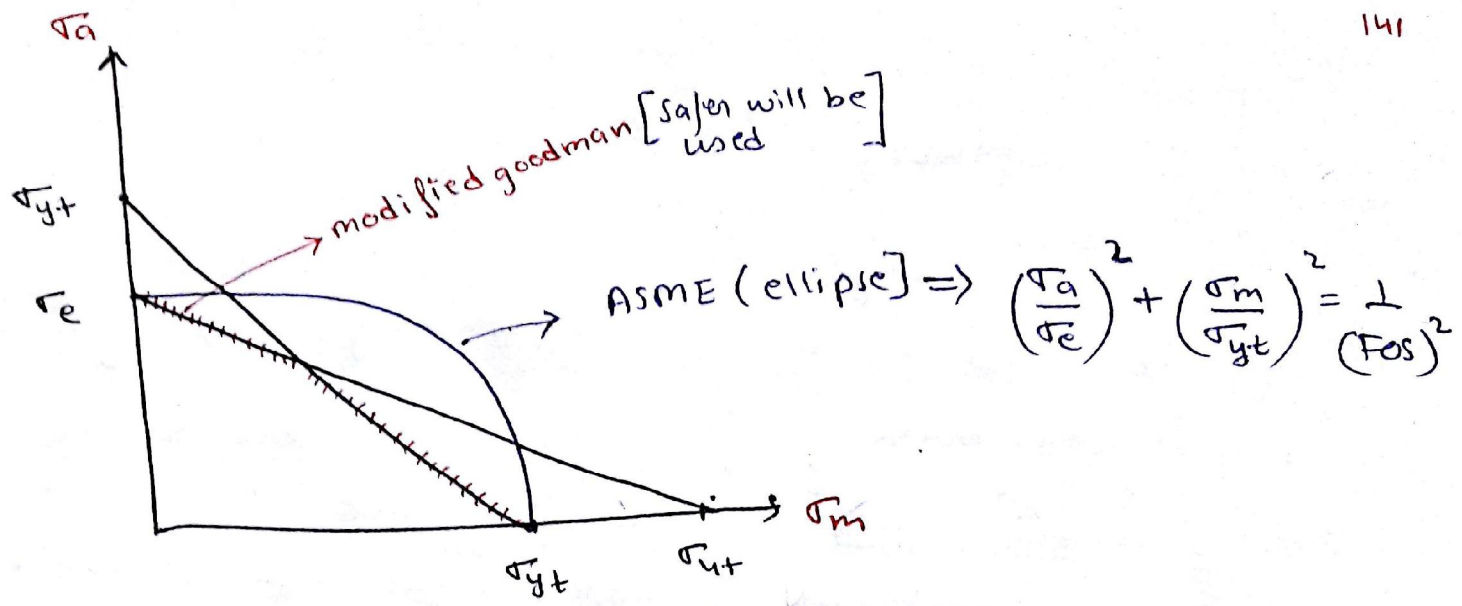 141
σa
modified goodman [safer will be used]
σyt
σe
ASME (ellipse] => (σa/σe)² + (σm/σyt)² = 1/(FOS)²
σm
σyt
σut